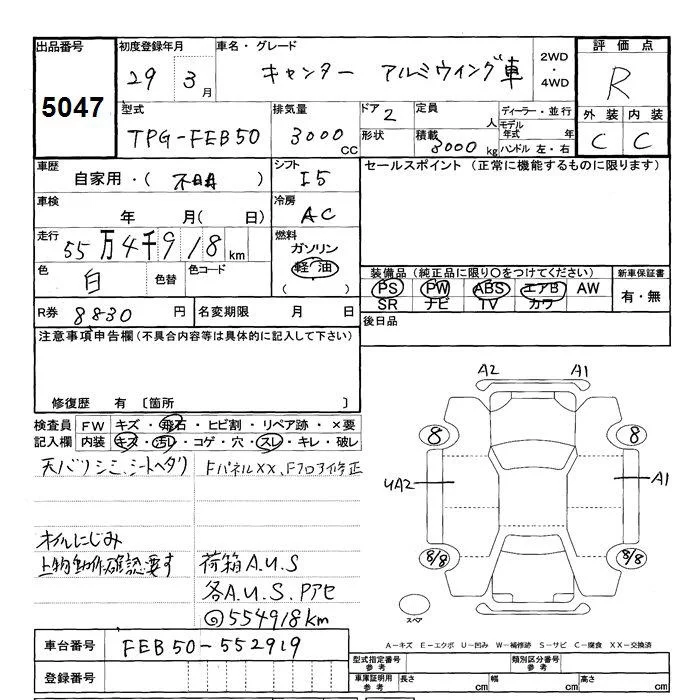 出品番号 初度登録年月 車名・グレード 2WD・4WD 評価点
5047 29 3月 キャンター アルミウイング車 R
型式 排気量 ドア 2 定員 人 ディーラー・並行 外装 内装
TPG-FEB50 3000 CC 形状 積載 3000 kg モデル年式 年 ハンドル 左・右 C C
車歴 シフト セールスポイント(正常に機能するものに限ります)
自家用・( 不明 ) I5
車検 冷房
年 月( 日) AC
走行 燃料
55万4千918km ガソリン
色 色替 色コード 軽油
白 ( )
装備品(純正品に限り○をつけてください) 新車保証書
PS PW ABS エアB AW 有・無
SR ナビ TV カワ
R券 8830 円 名変期限 月 日 後日品
注意事項申告欄(不具合内容等は具体的に記入して下さい)
修復歴 有〔箇所 〕
検査員 FW キズ・飛石・ヒビ割・リペア跡・×要
記入欄 内装 キズ・汚レ・コゲ・穴・スレ・キレ・破レ
天バリシミ、シートヘタリ FパネルXX、Fフロア修正
オイルにじみ
上物動作確認要す 荷箱A.U.S
各A.U.S.Pアセ
◎554918km
A2 A1
8 8
4A2 A1
8/8 8/8
スペア
A-キズ E-エクボ U-凹み W-補修跡 S-サビ C-腐食 XX-交換済
車台番号 FEB50-552919
登録番号
型式指定番号 参考 類別区分番号 参考
車庫証明用 参考 長さ cm 幅 cm 高さ cm